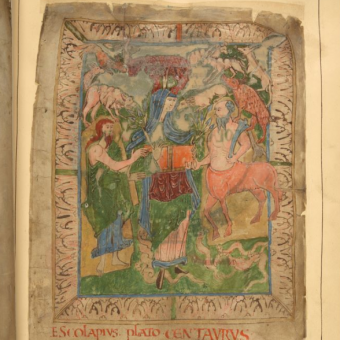 ESCOLAPIUS PLATO CENTAURUS